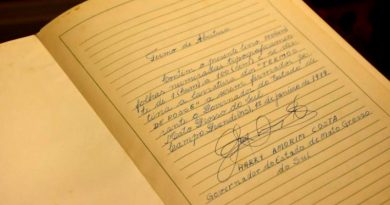 Termo de Abertura
Contém o presente livro, numeradas
folhas numeradas tipograficamen-
te, de 1 (hum) a 100 (cem) e se des-
tina à lavratura dos "TERMOS
DE POSSE" a serem firmados pe-
rante o Governador do Estado de
Mato Grosso do Sul.
Campo Grande(MS), 1º de janeiro de 1979.
HARRY AMORIM COSTA
Governador do Estado de Mato Grosso
do Sul